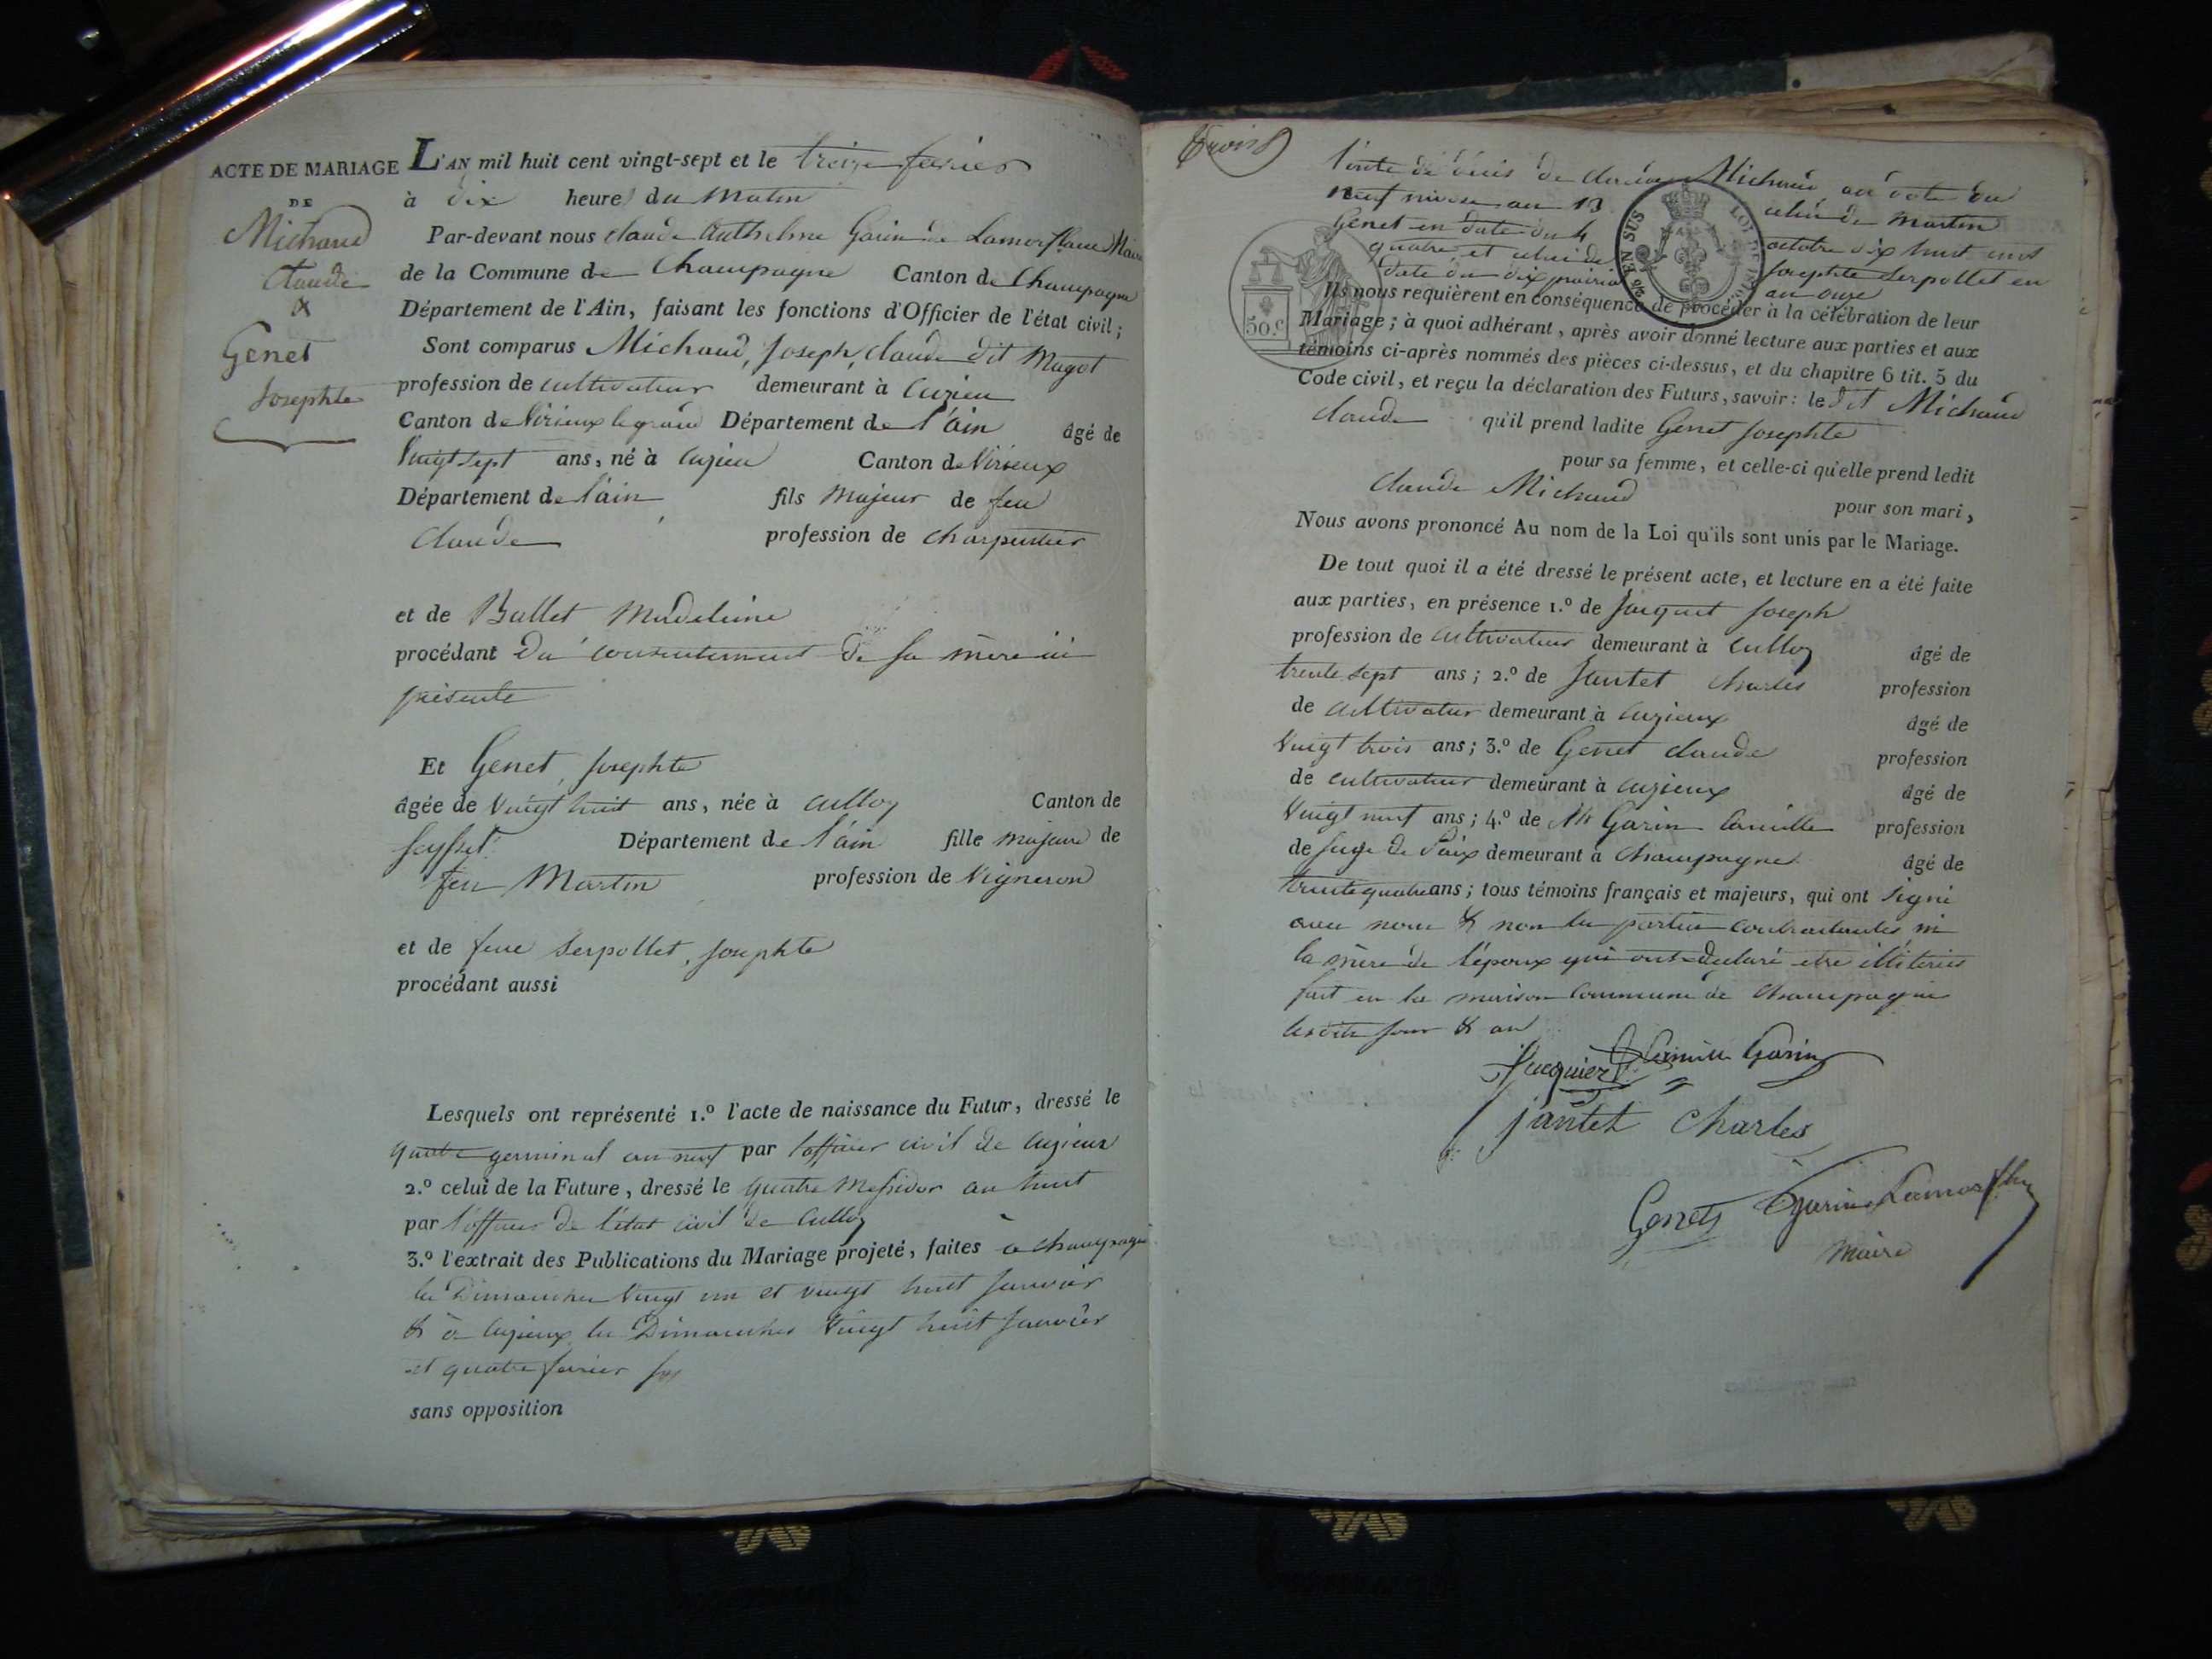 ACTE DE MARIAGE
DE
Michaud
Claude
&
Genet
Josephte
L'AN mil huit cent vingt-sept et le treize fevrier
à dix heures du matin
Par-devant nous Claude Anthelme Garin de Lamorflanc Maire
de la Commune de Champagne Canton de Champagne
Département de l'Ain, faisant les fonctions d'Officier de l'état civil;
Sont comparus Michaud, Joseph, Claude dit Magot
profession de cultivateur demeurant à Cuzieu
Canton de Virieux le grand Département de l'ain âgé de
vingt sept ans, né à Cuzieu Canton de Virieux
Département de l'ain fils majeur de feu
Claude profession de charpentier
et de Ballet Madeleine
procédant du consentement de sa mère ici
présente
Et Genet, Josephte
âgée de vingt huit ans, née à Culloz Canton de
Seyssel Département de l'ain fille majeure de
feu Martin profession de Vigneron
et de feue Serpollet, Josephte
procédant aussi
Lesquels ont représenté 1.º l'acte de naissance du Futur, dressé le
quatre germinal an neuf par l'officier civil de Cuzieux
2.º celui de la Future, dressé le quatre Messidor an huit
par l'officier de l'état civil de Culloz
3.º l'extrait des Publications du Mariage projeté, faites à Champagne
les Dimanches vingt un et vingt huit Janvier
& à Cuzieux les Dimanches vingt huit Janvier
et quatre fevrier
sans opposition
trois
l'acte de décès de Claude Michaud en date du
neuf nivose an 13 celui de Martin
Genet en date du 4 octobre dix huit cent
quatre et celui de Josephte Serpollet en
date du dix prairial an onze
50 c
EN SUS
LOI DE 1816
Ils nous requièrent en conséquence de procéder à la célébration de leur
Mariage; à quoi adhérant, après avoir donné lecture aux parties et aux
témoins ci-après nommés des pièces ci-dessus, et du chapitre 6 tit. 5 du
Code civil, et reçu la déclaration des Futurs, savoir: le dit Michaud
Claude qu'il prend ladite Genet Josephte
pour sa femme, et celle-ci qu'elle prend ledit
Claude Michaud pour son mari,
Nous avons prononcé Au nom de la Loi qu'ils sont unis par le Mariage.
De tout quoi il a été dressé le présent acte, et lecture en a été faite
aux parties, en présence 1.º de Joseph
profession de cultivateur demeurant à Culloz âgé de
trente sept ans; 2.º de Jantet Charles profession
de cultivateur demeurant à Cuzieux âgé de
vingt trois ans; 3.º de Genet Claude profession
de cultivateur demeurant à Cuzieux âgé de
vingt neuf ans; 4.º de Mr Garin Camille profession
de Juge de Paix demeurant à Champagne âgé de
trente quatre ans; tous témoins français et majeurs, qui ont signé
avec nous & non les parties contractantes ni
la mère de l'époux qui ont declaré etre illiterés
fait en la maison commune de Champagne
lesdits jour & an
Jacquier Camille Garin
jantet Charles
Genet Garin Lamorflanc
Maire